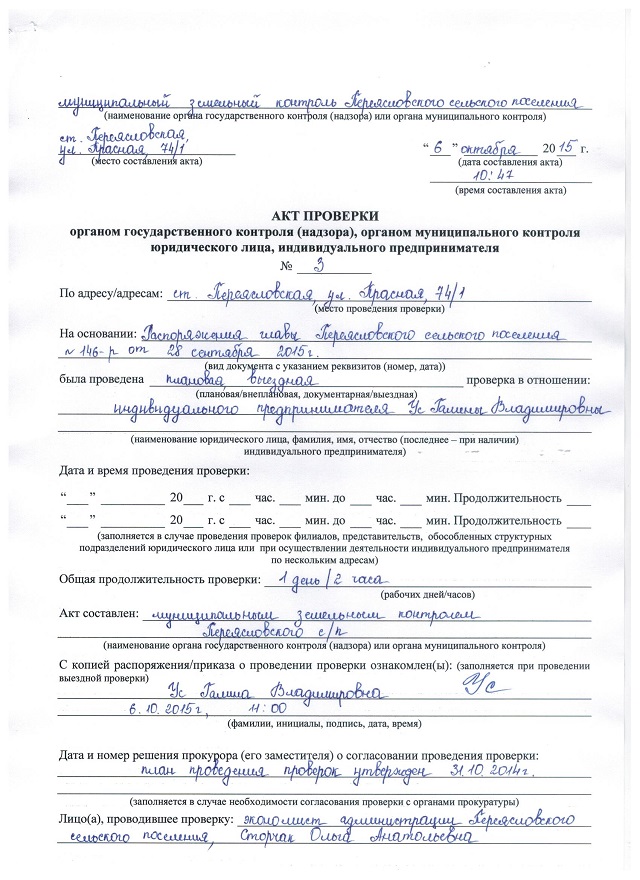 муниципальный земельный контроль Переясловского сельского поселения
(наименование органа государственного контроля (надзора) или органа муниципального контроля)
ст. Переясловская,
ул. Красная, 74/1
(место составления акта)
“ 6 ” октября 2015 г.
(дата составления акта)
10:47
(время составления акта)
АКТ ПРОВЕРКИ
органом государственного контроля (надзора), органом муниципального контроля
юридического лица, индивидуального предпринимателя
№ 3
По адресу/адресам: ст. Переясловская, ул. Красная, 74/1
(место проведения проверки)
На основании: Распоряжения главы Переясловского сельского поселения
№ 146-р от 28 сентября 2015г.
(вид документа с указанием реквизитов (номер, дата))
была проведена плановая, выездная проверка в отношении:
(плановая/внеплановая, документарная/выездная)
индивидуального предпринимателя Ус Галины Владимировны
(наименование юридического лица, фамилия, имя, отчество (последнее – при наличии)
индивидуального предпринимателя)
Дата и время проведения проверки:
“___” __________ 20___ г. с ___ час. ___ мин. до ___ час. ___ мин. Продолжительность ____
“___” __________ 20___ г. с ___ час. ___ мин. до ___ час. ___ мин. Продолжительность ____
(заполняется в случае проведения проверок филиалов, представительств, обособленных структурных
подразделений юридического лица или при осуществлении деятельности индивидуального предпринимателя
по нескольким адресам)
Общая продолжительность проверки: 1 день/2 часа
(рабочих дней/часов)
Акт составлен: муниципальным земельным контролем
Переясловского с/п
(наименование органа государственного контроля (надзора) или органа муниципального контроля)
С копией распоряжения/приказа о проведении проверки ознакомлен(ы): (заполняется при проведении
выездной проверки)
Ус Галина Владимировна Ус
6.10.2015г, 11:00
(фамилии, инициалы, подпись, дата, время)
Дата и номер решения прокурора (его заместителя) о согласовании проведения проверки:
план проведения проверок утвержден 31.10.2014г.
(заполняется в случае необходимости согласования проверки с органами прокуратуры)
Лицо(а), проводившее проверку: экономист администрации Переясловского
сельского поселения, Сторчак Ольга Анатольевна